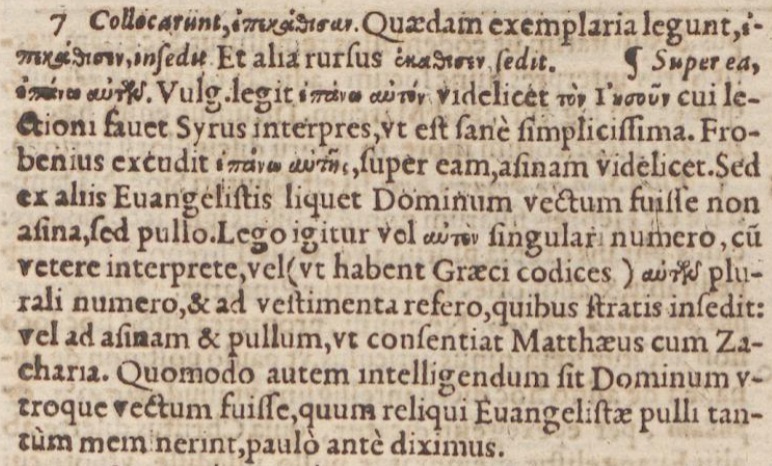 7 Collocarunt, ἐπεκάθισαν. Quædam exemplaria legunt, ἐ-
πεκάθισεν, insedit. Et alia rursus ἐκάθισεν sedit. ¶ Super ea,
ἐπάνω αὐτῶν. Vulg. legit ἐπάνω αὐτόν videlicet τὸν Ἰησοῦν cui le-
ctioni fauet Syrus interpres, vt est sanè simplicissima. Fro-
benius excudit ἐπάνω αὐτῆς, super eam, asinam videlicet. Sed
ex aliis Euangelistis liquet Dominum vectum fuisse non
asina, sed pullo. Lego igitur vel αὐτὸν singulari numero, cũ
vetere interprete, vel (vt habent Græci codices ) αὐτῶν plu-
rali numero, & ad vestimenta refero, quibus stratis insedit:
vel ad asinam & pullum, vt consentiat Matthæus cum Za-
charia. Quomodo autem intelligendum sit Dominum v-
troque vectum fuisse, quum reliqui Euangelistæ pulli tan-
tùm meminerint, paulò antè diximus.